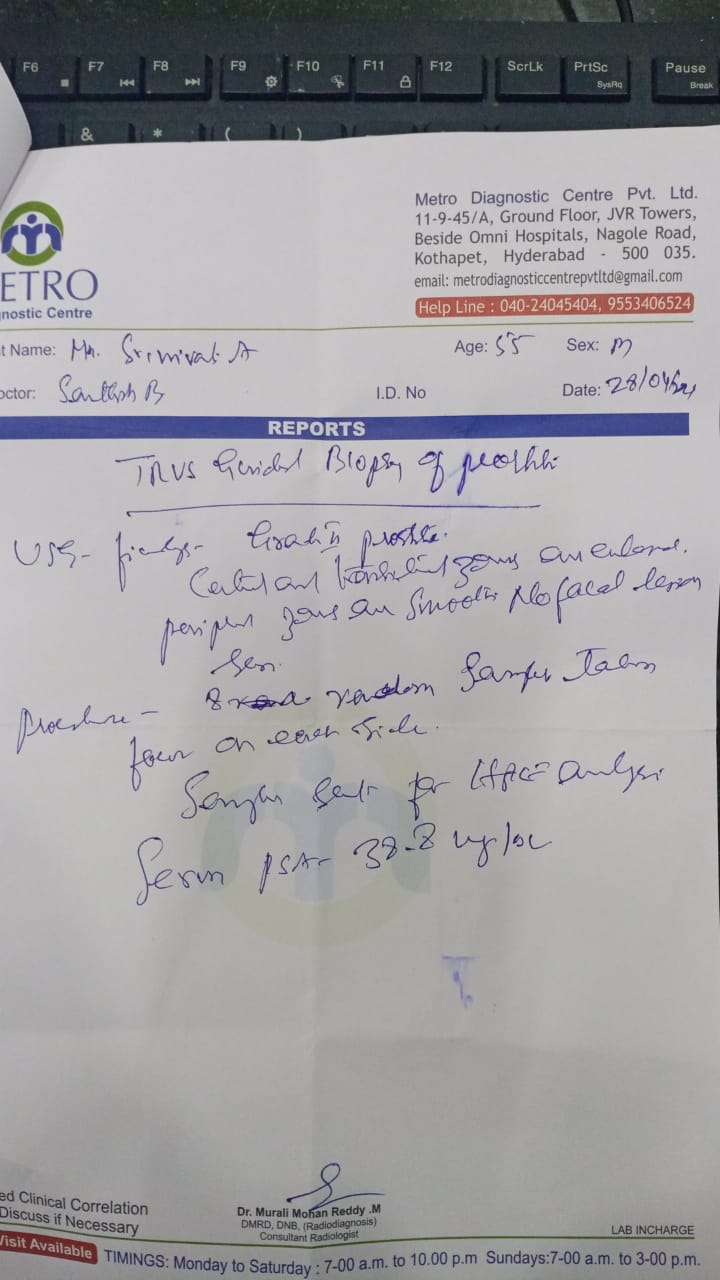 F6 F7 F8 F9 F10 F11 F12 ScrLk PrtSc SysRq Pause Break
& * ( )
Metro Diagnostic Centre Pvt. Ltd.
11-9-45/A, Ground Floor, JVR Towers,
Beside Omni Hospitals, Nagole Road,
Kothapet, Hyderabad - 500 035.
email: metrodiagnosticcentrepvtltd@gmail.com
Help Line : 040-24045404, 9553406524
ETRO
nostic Centre
t Name: Mr. A Age: 55 Sex: M
octor: B I.D. No Date: 28/04/
REPORTS
TRUS Guided Biopsy of
USG- Grade II
Central and zones are
zones are smooth No focal lesion
Procedure - 8 random Samples Taken
four on each side.
Samples sent for analysis
Serum PSA- 38.8 ng/
Dr. Murali Mohan Reddy .M
DMRD, DNB, (Radiodiagnosis)
Consultant Radiologist
ed Clinical Correlation
Discuss if Necessary
LAB INCHARGE
Visit Available TIMINGS: Monday to Saturday : 7-00 a.m. to 10.00 p.m Sundays:7-00 a.m. to 3-00 p.m.